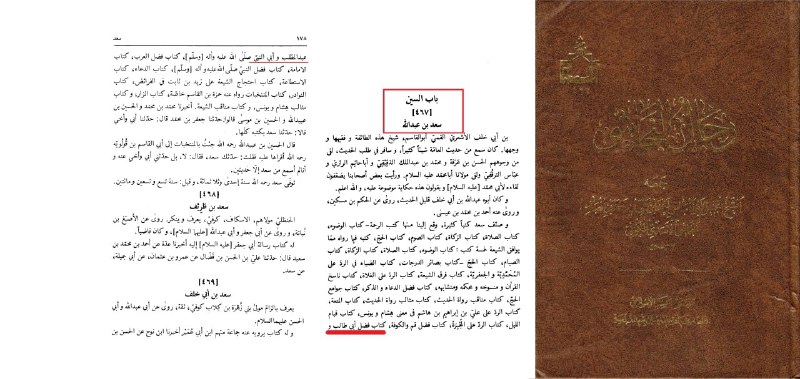 باب السين
[٤٦٧]
سعد بن عبدالله
بن أبي خلف الأشعريّ القمّيّ أبوالقاسم، شيخ هذه الطائفة و فقيهها و
وجهها. كان سمع من حديث العامّة شيئاً كثيراً، و سافر في طلب الحديث، لقى
من وجوههم الحسن بن عرفة و محمّد بن عبدالملك الدقيقيّ و أباحاتم الرازيّ و
عبّاس الترقفيّ ولقى مولانا أبامحمّد عليه السلام. ورأيت بعض أصحابنا يضعّفون
لقاءه لأبي محمّد [عليه السلام] و يقولون هذه حكاية موضوعة عليه، و الله اعلم.
و كان أبوه عبدالله بن أبي خلف قليل الحديث، روى عن الحكم بن مسكين،
و روى عنه أحمد بن محمّد بن عيسى.
و صنّف سعد كتباً كثيرة، وقع إلينا منها كتب الرحمة- كتاب الوضوء،
كتاب الصلاة، كتاب الزكاة، كتاب الصوم، كتاب الحجّ، كتبه فيما رواه ممّا
يوافق الشيعة خمسة كتب: كتاب الوضوء، كتاب الصلاة، كتاب الزكاة، كتاب
الصيام، كتاب الحجّ -كتاب بصائر الدرجات، كتاب الضياء في الردّ على
المُحَمَّدِيَّة و الجعفريّة، كتاب فرق الشيعة، كتاب الردّ على الغلاة، كتاب ناسخ
القرآن و منسوخه و محكمه ومتشابهه، كتاب فضل الدعاء و الذكر، كتاب جوامع
الحجّ، كتاب مناقب رواة الحديث، كتاب مثالب رواة الحديث، كتاب المتعة،
كتاب الردّ على عليّ بن إبراهيم بن هاشم في معنى هشام و يونس، كتاب قيام
الليل، كتاب الردّ على المُجْبِرة، كتاب فضل قم والكوفة، كتاب فضل أبي طالب و
١٧٨
سعد
عبدالمطّلب و أبي النبيّ صلّى الله عليه وآله [وسلّم]، كتاب فضل العرب، كتاب
الامامة، كتاب فضل النبيّ صلّى الله عليه وآله [وسلّم]، كتاب الدعاء، كتاب
الاستطاعة، كتاب احتجاج الشيعة على زيد بن ثابت في الفرائض، كتاب
النوادر، كتاب المنتخبات رواه عنه حمزة بن القاسم خاصّة، كتاب المزار، و كتاب
مثالب هشام و يونس، و كتاب مناقب الشيعة. أخبرنا محمّد بن محمّد و الحسين بن
عبيدالله و الحسين بن موسى قالوا: حدّثنا جعفر بن محمّد قال: حدّثنا أبي و أخي
قالا: حدّثنا سعد بكتبه كلّها.
قال الحسين بن عبيدالله رحمه الله جئت بالمنتخبات إلى أبي القاسم بن قُولُويَه
رحمه الله أقرأها عليه فقلت: حدّثك سعد، فقال: لا، بل حدّثني أبي وأخي عنه و
أنالم أسمع من سعد إلّا حديثين.
توفّي سعد رحمه الله سنة إحدى وثلاثمائة، و قيل: سنة تسع و تسعين ومائتين.
[٤٦٨]
سعد بن طَرِيْف
الحنظليّ مولاهم، الاسكاف، كوفيّ، يعرف و ينكر، روى عن الأصبغ بن
نُباتة، و روى عن أبي جعفر و أبي عبدالله [عليهما السلام]، و كان قاضياً.
له كتاب رسالة أبي جعفر [عليه السلام] إليه أخبرنا عدّة عن أحمد بن محمّد بن
سعيد قال: حدّثنا عليّ بن الحسن بن فضّال عن عمرو بن عثمان، عن أبي جميلة،
عن سعد.
[٤٦٩]
سعد بن أبي خلف
يعرف بالزام مولىٰ بني زُهرة بن كلاب كوفيّ، ثقة، روى عن أبي عبدالله و أبي
الحسن عليهماالسلام.
و له كتاب يرويه عنه جماعة منهم ابن أبي عُمير أخبرنا ابن نوح عن الحسن بن
رجال النجاشي